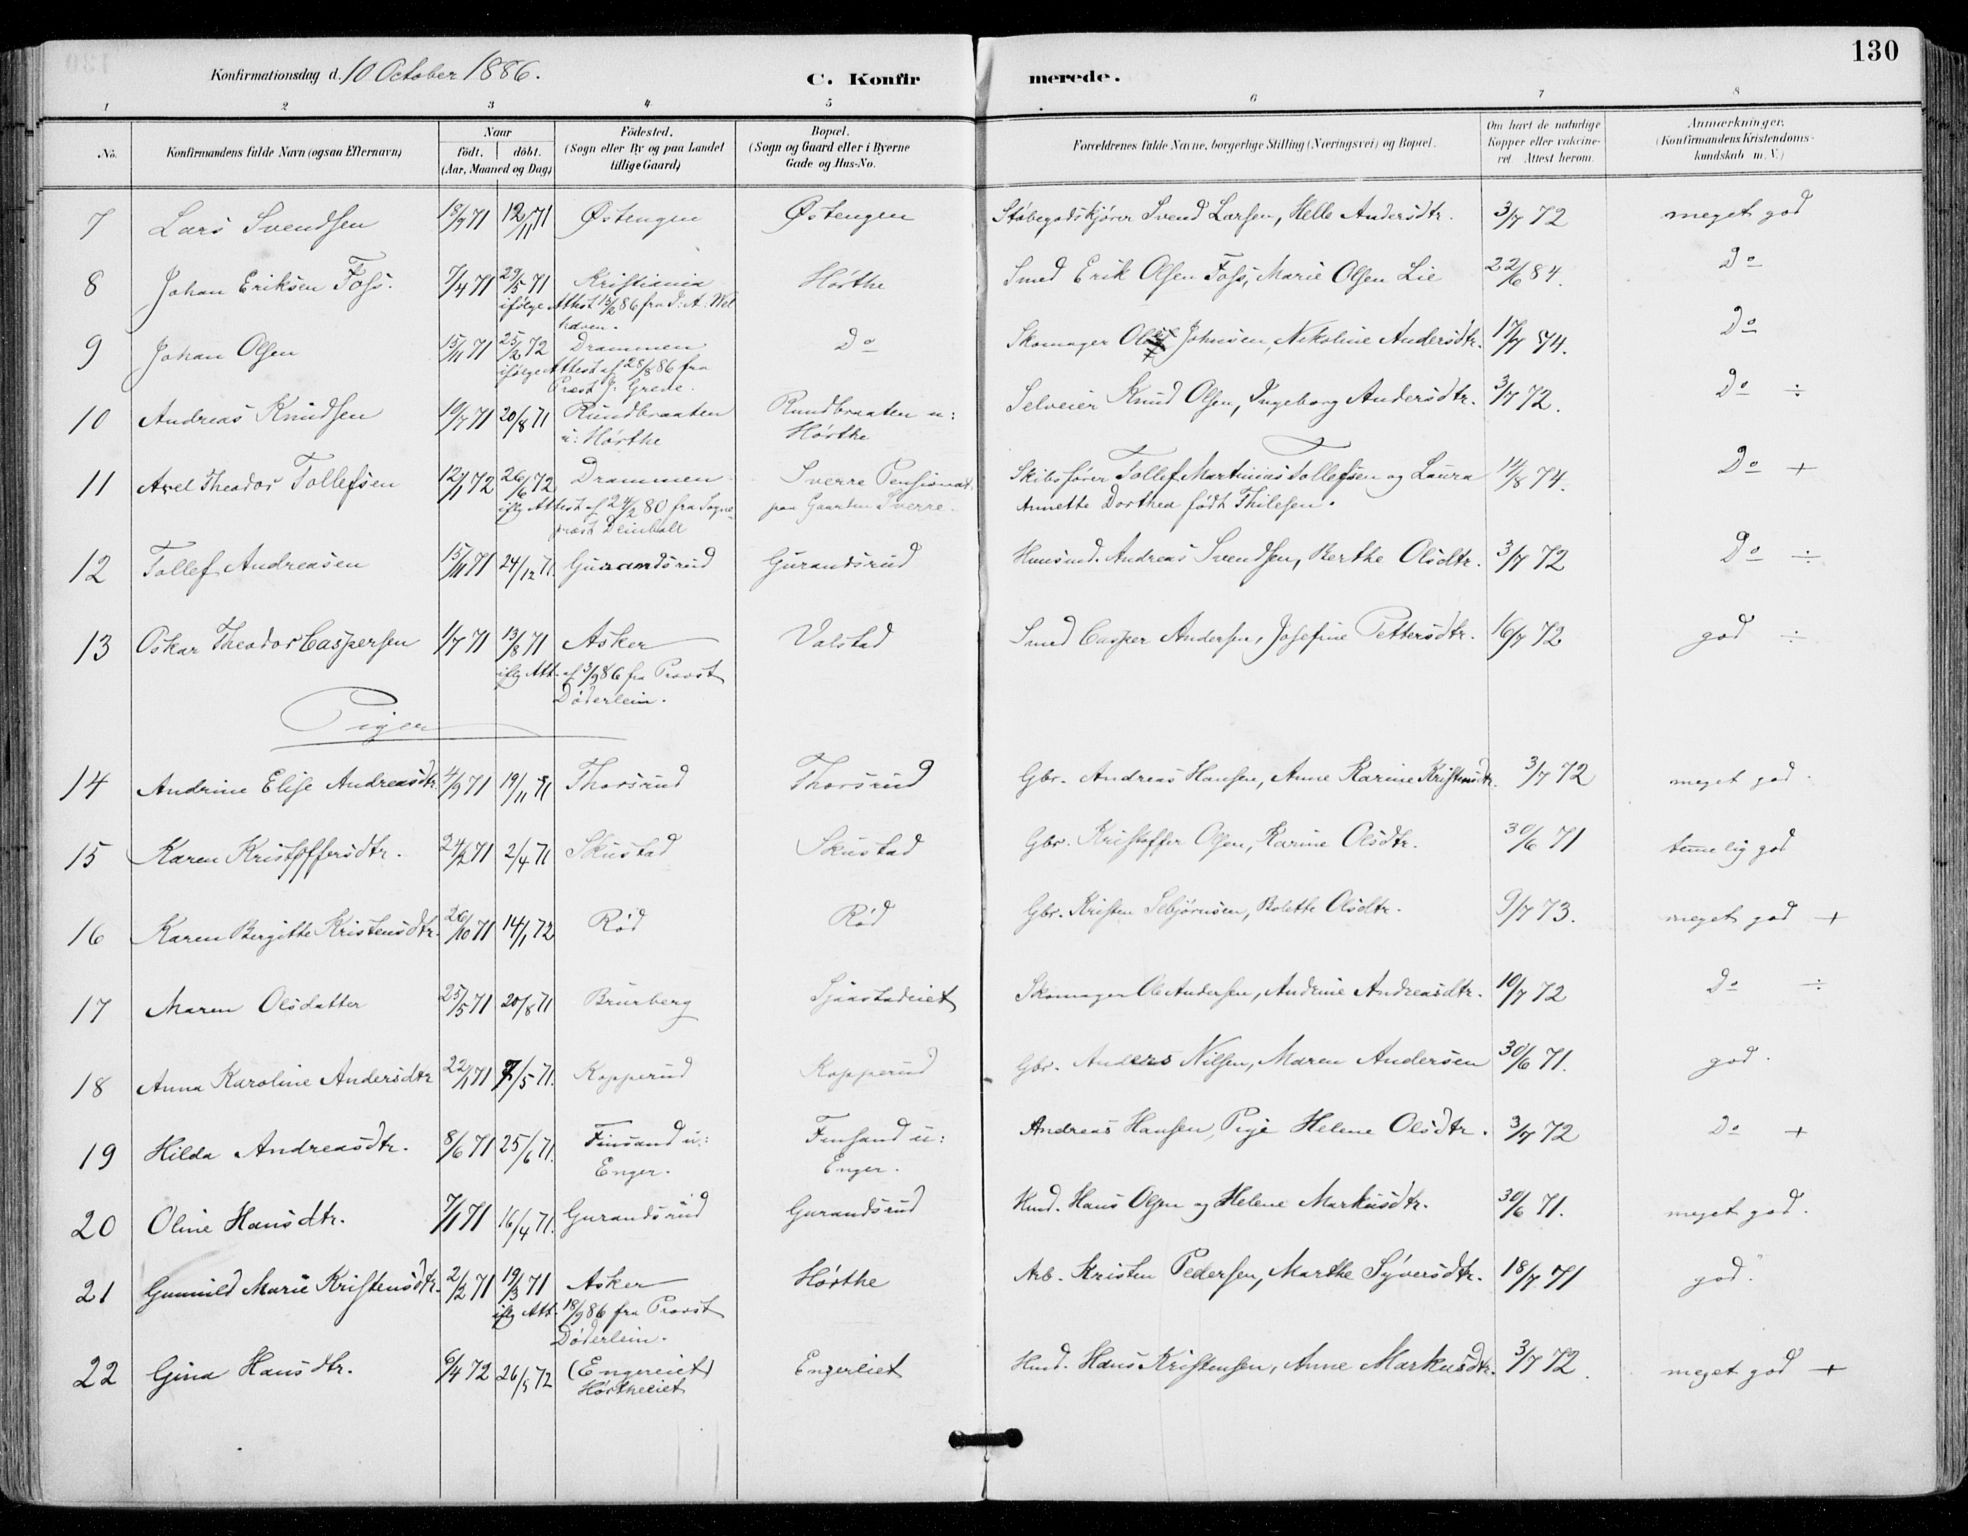 130
Konfirmationsdag d. 10 October 1886.
C. Konfir merede.
1 2 3 4 5 6 7 8
No.
Konfirmandens fulde Navn (ogsaa Efternavn)
Naar
födt. döbt.
(Aar, Maaned og Dag)
Födested.
(Sogn eller By og paa Landet
tillige Gaard)
Bopæl.
(Sogn og Gaard eller i Byerne
Gade og Hus-No.
Forældrenes fulde Navne, borgerlige Stilling (Næringsvei) og Bopæl.
Om havt de naturlige
Kopper eller vakcine-
ret. Attest herom.
Anmærkninger.
(Konfirmandens Kristendoms-
kundskab m. V.)
7 Lars Svendsen 71 12/11 71 Østengen Østengen Støbegodskjører Svend Larsen, Helle Andersdtr. 3/7 72 meget god
8 Johan Eriksen Foss. 7/4 71 29/5 71 Kristiania Hørthe Smed Erik Olsen Foss, Marie Olsen Lie 22/6 84. Do
ifølge Attest 86 fra J. A. Wel
haven.
9 Johan Olsen 15/11 71 25/2 72 Drammen Do Skomager Johnsen, Nikoline Andersdtr. 17/7 74. Do
ifølge Attest af 28/8 86 fra
Præst J. Grede.
10 Andreas Knudsen 19/7 71 20/8 71 Rundbraaten Rundbraaten u: Selveier Knud Olsen, Ingeborg Andersdtr. 3/7 72. Do ÷
u: Hørthe Hørthe
11 Axel Theodor Tollefsen 12/1 72 26/6 72 Drammen Sverre Pensionat Skibsfører Tollef Martinius Tollefsen og Laura 74. Do +
iflg Attest af 24/2 80 fra Sogne- paa Gaarden Sverre. Annette Dorthea født Thilesen.
præst Deinboll
12 Tollef Andreasen 15/11 71 24/12 71. Gurandsrud Gurandsrud Husmd. Andreas Svendsen, Berthe Olsdtr. 3/7 72 Do ÷
13 Oskar Theodor Caspersen 1/7 71 13/8 71 Asker Valstad Smed Casper Andersen, Josefine Pettersdtr. 16/7 72 god ÷
iflg Att. af 3/9 86 fra Provst
Døderlein.
Piger
14 Andrine Elise Andreasdtr. 4/9 71 19/11 71 Thorsrud Thorsrud Gbr. Andreas Hansen, Anne Karine Kristensdtr. 3/7 72 meget god.
15 Karen Kristoffersdtr. 24/2 71 2/4 71 Skustad Skustad Gbr. Kristoffer Olsen, Karine Olsdtr. 30/6 71 temmelig god
16 Karen Bergitte Kristensdtr. 26/10 71 14/1 72 Rød Rød Gbr. Kristen Sebjørnsen, Bolette Olsdtr. 9/7 73. meget god +
17 Maren Olsdatter 25/5 71 20/8 71 Brurberg Sjaastadeiet Skomager Ole Andersen, Andrine Andreasdtr. 10/7 72 Do ÷
18 Anna Karoline Andersdtr 22/1 71 7/5 71. Kopperud Kopperud Gbr. Anders Nilsen, Maren Andersen 30/6 71. god.
19 Hilda Andreasdtr. 8/6 71 25/6 71. Finsand u: Finsand u: Andreas Hansen, Pige Helene Olsdtr. 3/7 72 Do +
Enger. Enger.
20 Oline Hansdtr. 7/1 71 16/4 71. Gurandsrud Gurandsrud Hmd. Hans Olsen og Helene Markusdtr. 30/6 71. meget god.
21 Gunnild Marie Kristensdtr. 2/2 71 19/3 71 Asker Hørthe Arb. Kristen Pedersen, Marthe Syversdtr. 18/7 71 god.
iflg Att. 18/9 86 fra Provst
Døderlein.
22 Gina Hansdtr. 6/4 72 26/5 72 (Engereiet) Engerliet Hmd. Hans Kristensen, Anne Markusdtr. 3/7 72. meget god +
Hørtheeiet